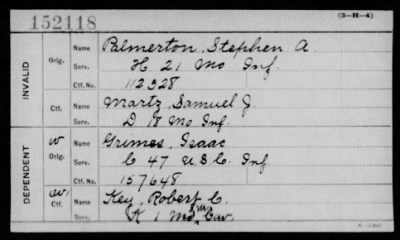 152118
(3-H-4)
INVALID
Orig.
Name Palmerton, Stephen A.
Serv. H 21 Mo Inf.
Ctf. No. 112328
Ctf.
Name Martz, Samuel J.
Serv. D 18 Mo Inf.
DEPENDENT
W
Orig.
Name Grimes, Isaac
Serv. C 47 U.S.C. Inf
Ctf. No. 157648
Ctf.
Name Key, Robert C.
Serv. K 1 Mo Cav.